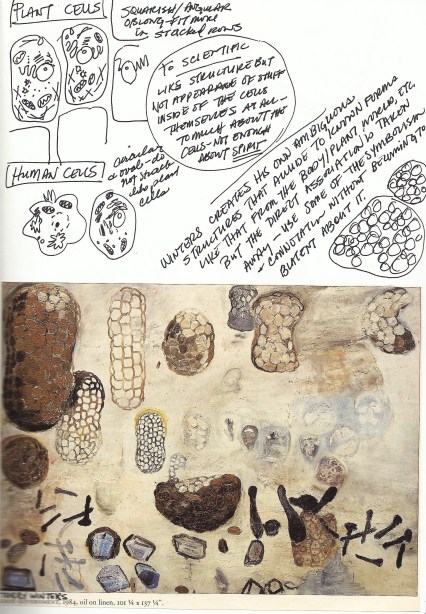 PLANT CELLS
SQUARISH/ANGULAR
OBLONG-FIT MORE
in STACKED ROWS
TO SCIENTIFIC
LIKE STRUCTURE BUT
NOT APPEARAGE OF STUFF
INSIDE OF THE CELLS
THEMSELVES AT ALL-
TO MUCH ABOUT THE
CELLS-NOT ENOUGH
ABOUT SPIRIT
HUMAN CELLS
circular
oval-do
not stack
like plant
cells
WINTERS CREATES HIS OWN AMBIGUOUS
STRUCTURES THAT ALLUDE TO KNOWN FORMS
LIKE THAT FROM THE BODY/PLANT WORLD, ETC.
BUT THE DIRECT ASSOCIATION IS TAKEN
AWAY - USE SOME OF THE SYMBOLISM
+ CONNOTATION WITHOUT BECOMMING TO
BLATENT ABOUT IT.
TERRY WINTERS
1984, oil on linen, 101 ¼ x 137 ¼".